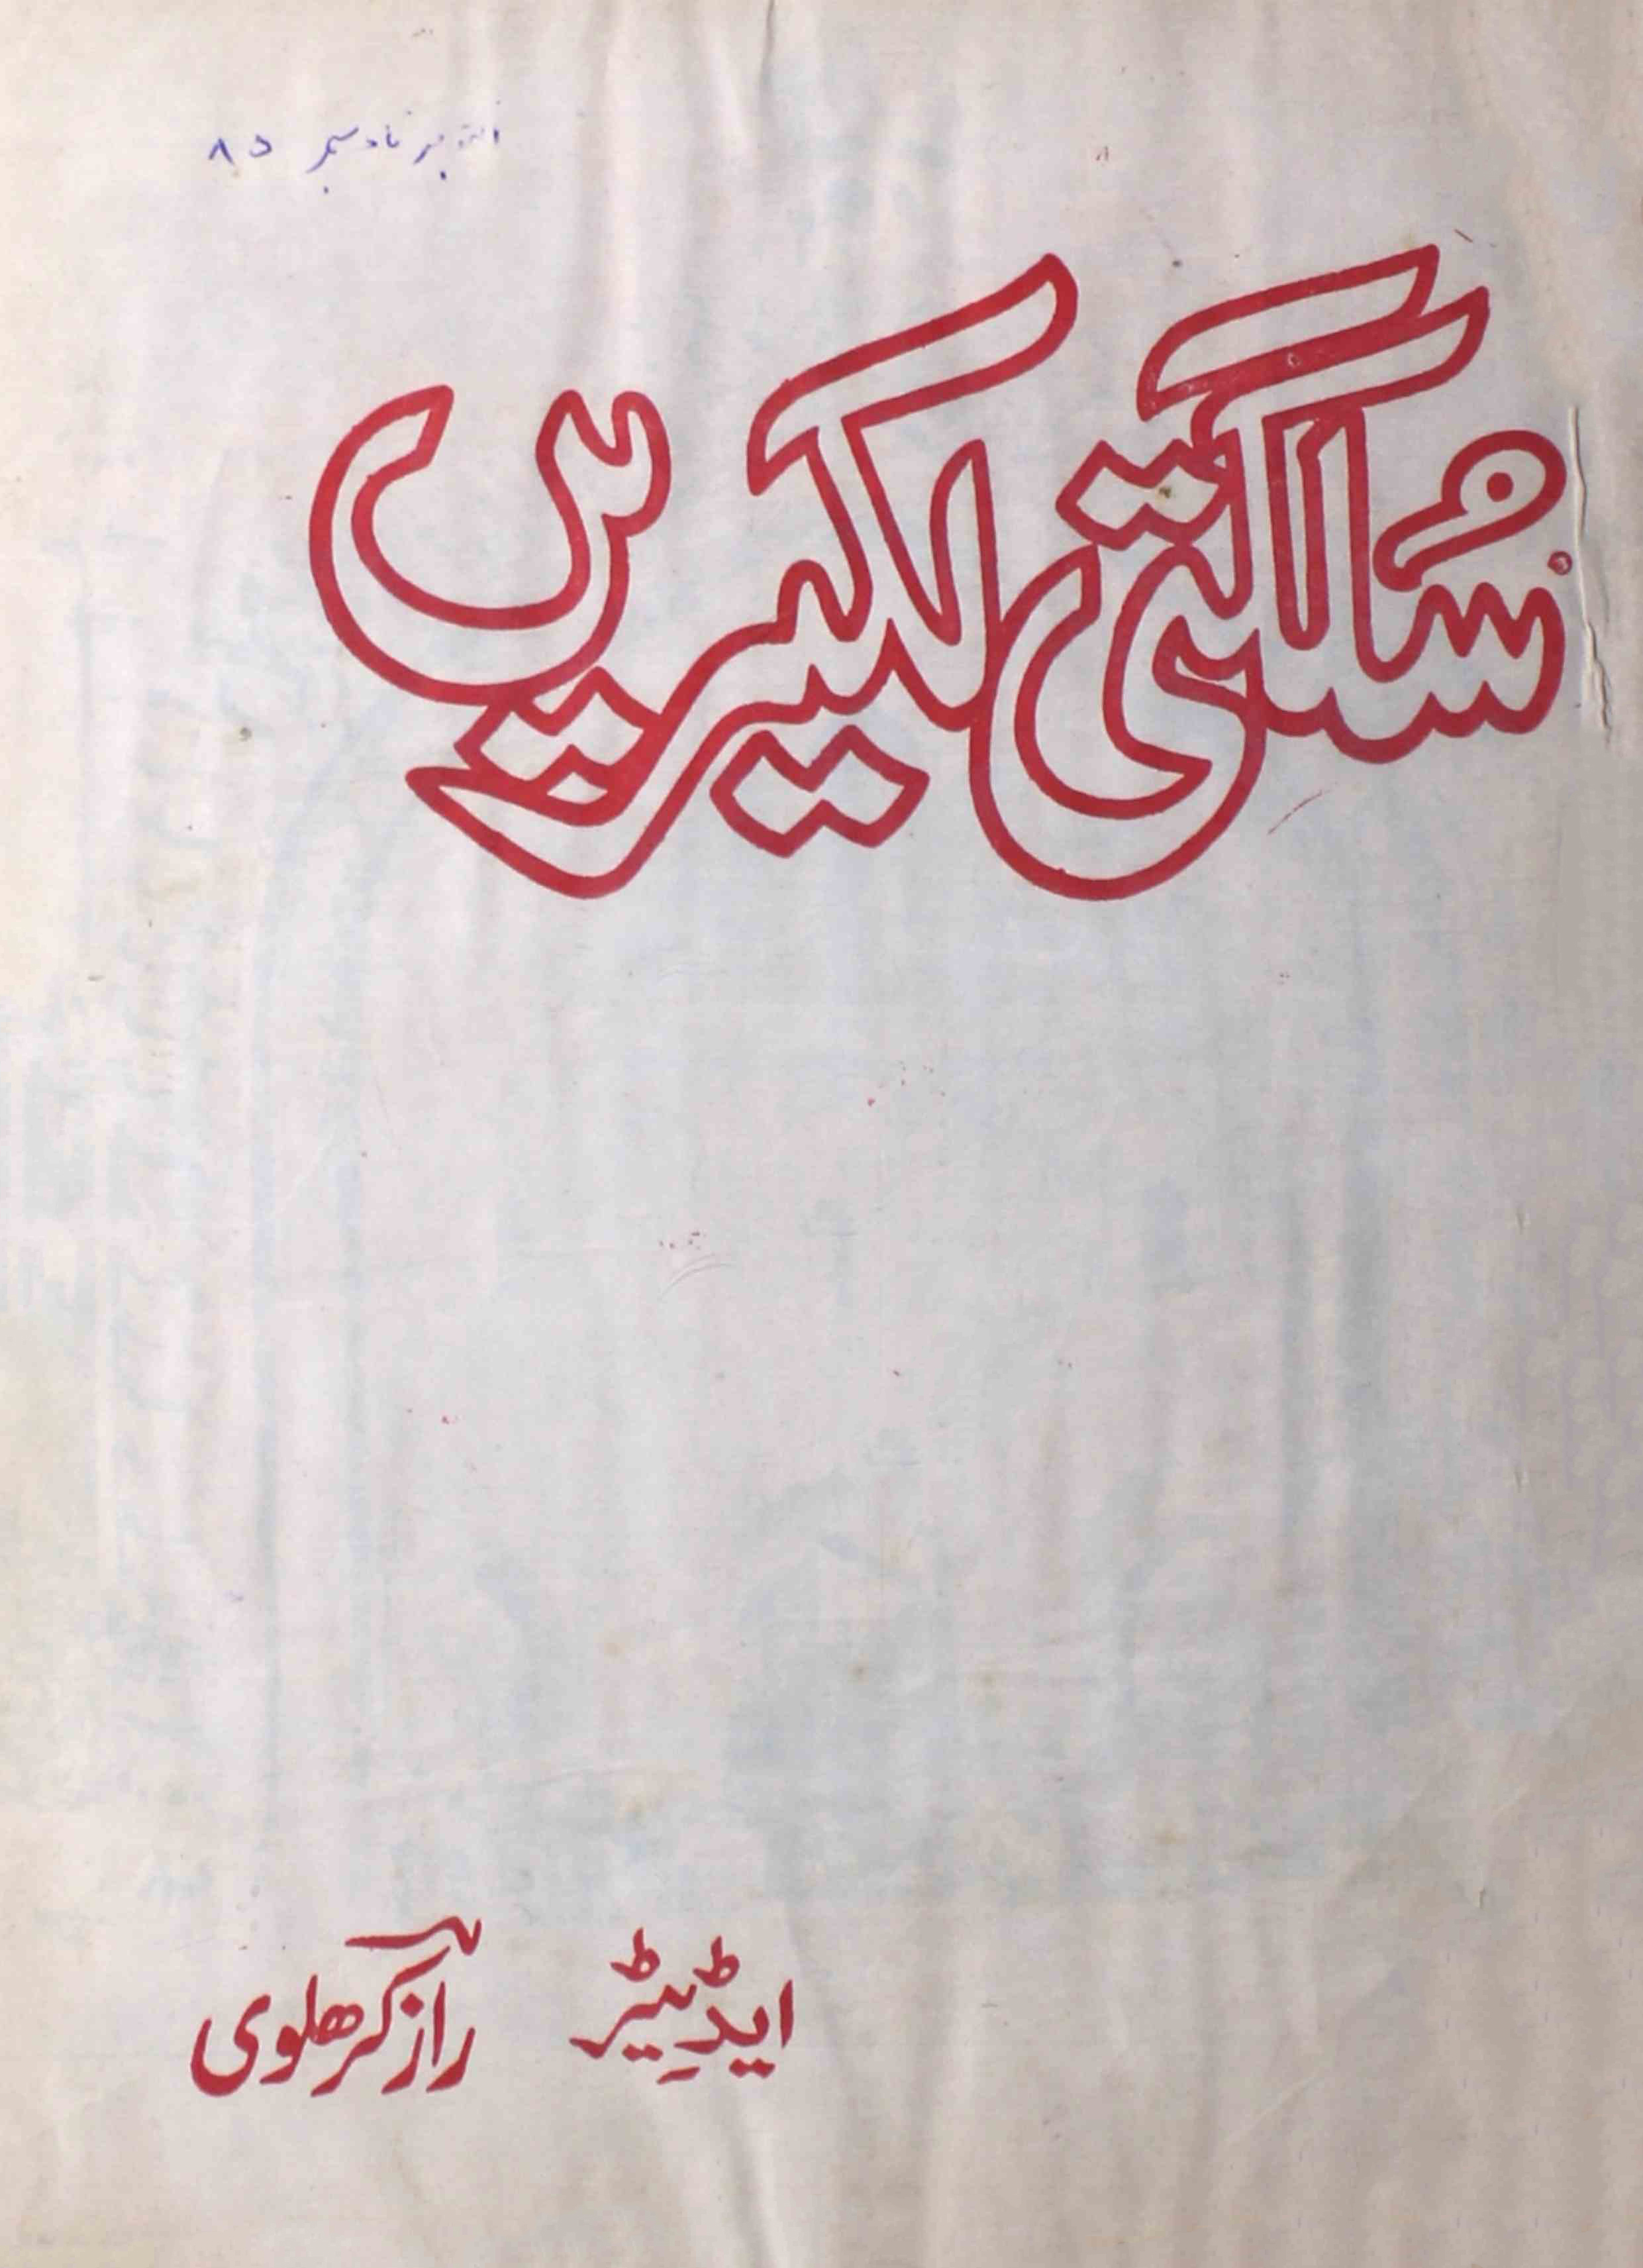 اکتوبر تا دسمبر ۸۵
سُلگتی لکیریں
ایڈیٹر رازؔ کرھلوی